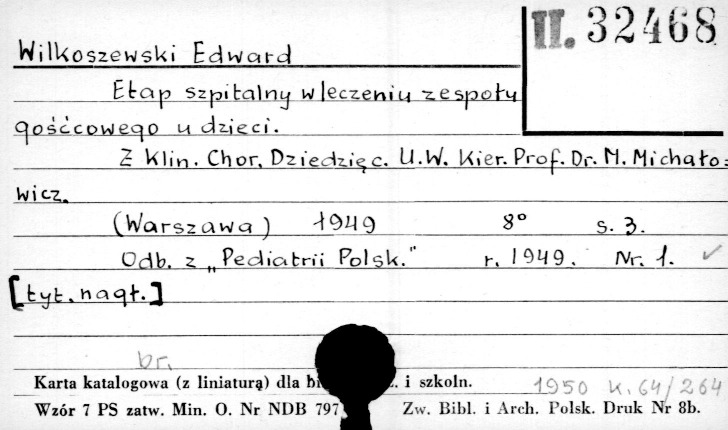 II. 32468
Wilkoszewski Edward
Etap szpitalny w leczeniu zespołu
gośćcowego u dzieci.
Z Klin. Chor. Dziedzięc. U.W. Kier. Prof. Dr. M. Michało=
wicz.
(Warszawa) 1949 8° s. 3.
Odb. z „Pediatrii Polsk." r. 1949. Nr. 1. ✓
[tyt. nagł.]
br.
Karta katalogowa (z liniaturą) dla i szkoln.
1950 K. 64/264
Wzór 7 PS zatw. Min. O. Nr NDB 797 Zw. Bibl. i Arch. Polsk. Druk Nr 8b.